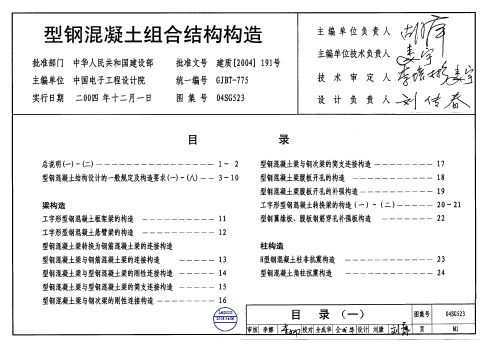 型钢混凝土组合结构构造
批准部门 中华人民共和国建设部 批准文号 建质[2004]191号
主编单位 中国电子工程设计院 统一编号 GJBT-775
实行日期 二00四年十二月一日 图集号 04SG523
主编单位负责人
主编单位技术负责人
技术审定人
设计负责人
目 录
总说明(一)-(二) 1-2
型钢混凝土结构设计的一般规定及构造要求(一)-(八) 3-10
梁构造
工字形型钢混凝土框架梁的构造 11
工字形型钢混凝土悬臂梁的构造 12
型钢混凝土梁转换为钢筋混凝土梁的连接构造
型钢混凝土梁与钢筋混凝土梁的连接构造 13
型钢混凝土梁与型钢混凝土梁的刚性连接构造 14
型钢混凝土梁与型钢混凝土梁的简支连接构造 15
型钢混凝土梁与钢次梁的刚性连接构造 16
型钢混凝土梁与钢次梁的简支连接构造 17
型钢混凝土梁腹板开孔的构造 18
型钢混凝土梁腹板开孔的补强构造 19
工字形型钢混凝土转换梁的构造(一)-(二) 20-21
型钢翼缘板、腹板钢筋穿孔补强板构造 22
柱构造
H型钢混凝土柱非抗震构造 23
型钢混凝土角柱抗震构造 24
目 录 (一) 图集号 04SG523
审核 李娜 校对 设计 刘廉 页 M1